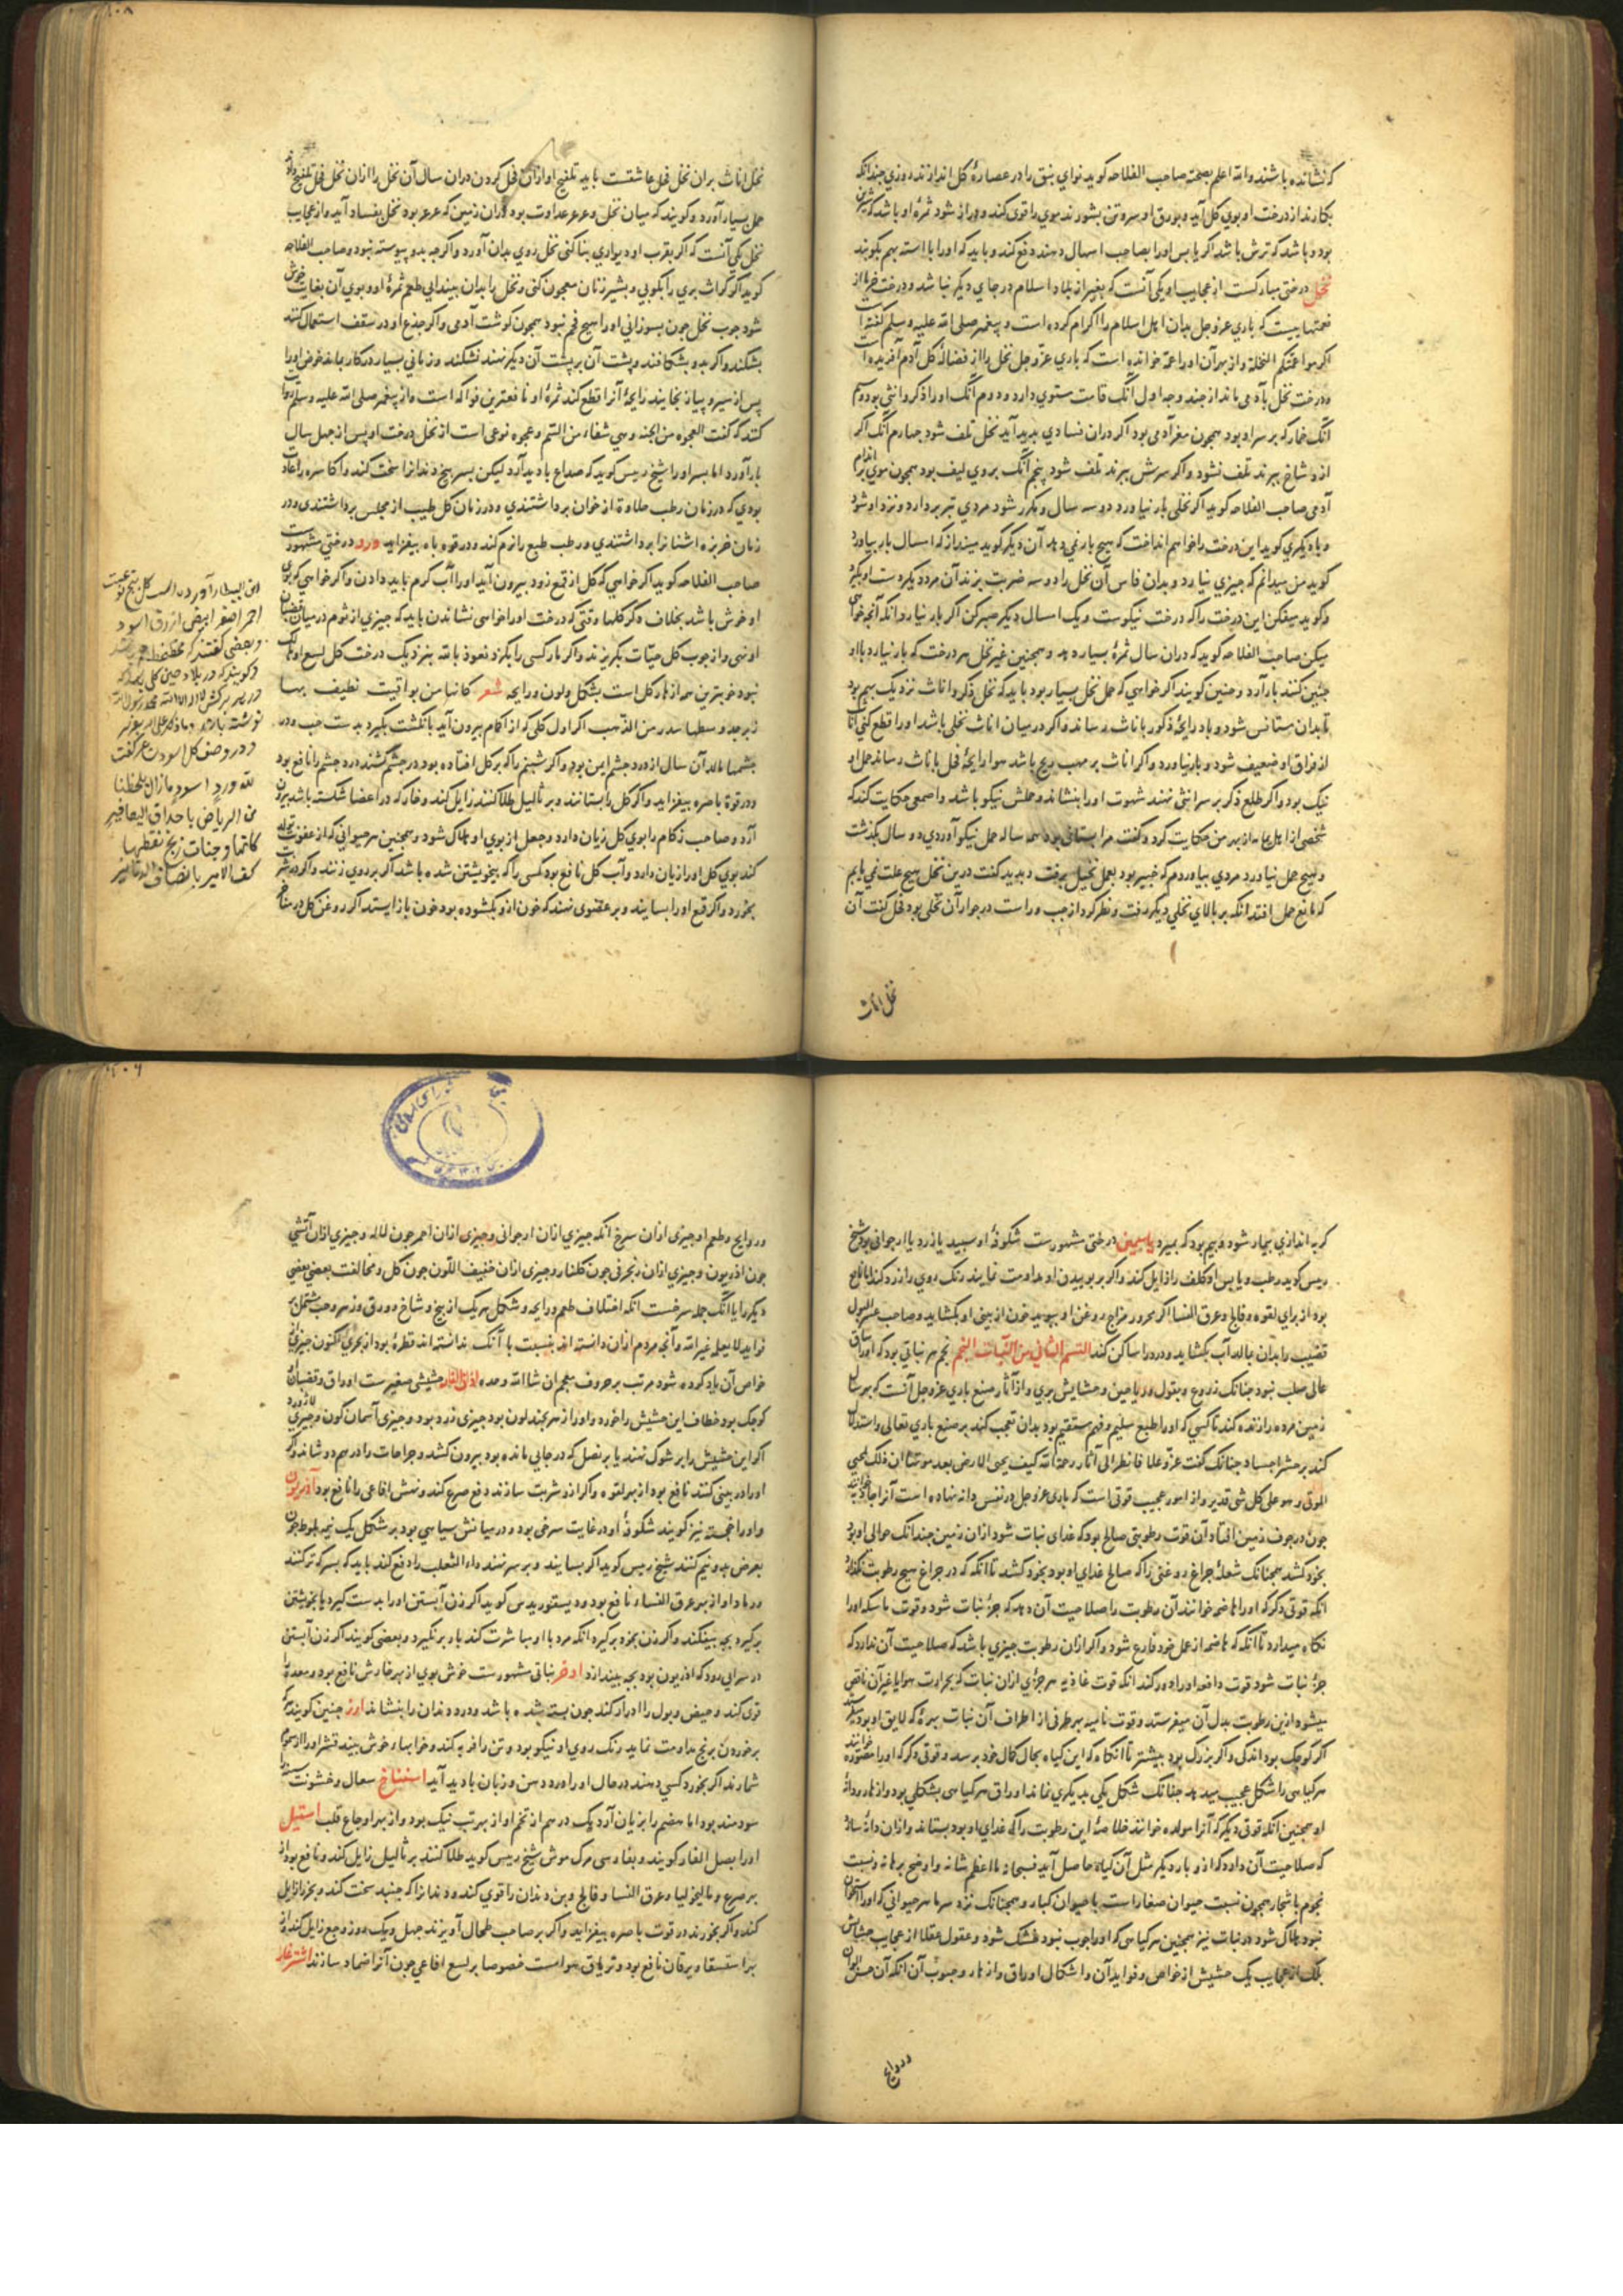 که نشانده باشند والله اعلم بصحته صاحب الفلاحه کوید نوای بنق را در عصارهٔ کل اندازند روزی چندانکه
بکارند از درخت او بوی کل آید و بورق او سر و تن بشورند موی را قوی کند و دراز شود ثمرهٔ او باشد که شیرین
بود و باشد که ترش باشد اکر یابس اورا بصاحب اسهال دهند دفع کند و باید که اورا با استه بهم بکوبند
نخل درختی مبارکست از عجایب او یکی آنست که بغیر از بلاد اسلام در جای دیکر نباشد و درخت خرما از
نعمتهاییست که باری عز وجل بدان اهل اسلام را اکرام کرده است و پیغمبر صلی الله علیه وسلم کفته است
اکرموا عمتکم النخلة و از بهر آن اورا عمه خوانده است که باری عز وجل نخل را از فضالهٔ کل آدم آفریده است
و درخت نخل بآدمی ماند از چند وجه اول آنک قامت مستوی دارد و دوم آنک اورا ذکر و انثی بود سیم
آنک خمار که بر سر او بود همچون مغز آدمی بود اکر دران فسادی پدید آید نخل تلف شود چهارم آنک اکر
ازو شاخ ببرند تلف نشود و اکر سرش ببرند تلف شود پنجم آنک بروی لیف بود همچون موی بر اندام
آدمی صاحب الفلاحه کوید اکر نخلی بار نیاورد دو سه سال و مکرر شود مردی تبر بردارد و نزد او شود
و با دیکری کوید این درخت را خواهم انداخت که هیچ بار نمی دهد آن دیکر کوید مینداز که امسال بار بیاورد
کوید من میدانم که چیزی نیاورد و بدان فاس آن نخل را دو سه ضربت بزند آن مرد دیکر دست او بکیرد
و کوید میفکن این درخت را که درخت نیکوست و یک امسال دیکر صبر کن اکر بار نیارد آنکه آنچه خواهی
میکن صاحب الفلاحه کوید که دران سال ثمرهٔ بسیار دهد و همچنین غیر نخل هر درخت که بار نیارد با او
چنین کنند بار آرد و چنین کویند اکر خواهی که حمل نخل بسیار بود باید که نخل ذکر و اناث نزدیک بهم بود
تا بدان مستانس شود و باد رایحهٔ ذکور باناث رساند و اکر در میان اناث نخلی باشد اورا قطع کنی اناث
از فراق او ضعیف شود و بار نیاورد و اکر اناث بر مهب ریح باشد هوا رایحهٔ فحل باناث رساند حمل او
نیک بود و اکر طلع ذکر بر سر انثی نهند شهوت اورا بنشاند و حملش نیکو باشد و اصمعی حکایت کند که
شخصی از اهل یمامه از بهر من حکایت کرد و کفت مرا بستانی بود همه ساله حمل نیکو آوردی دو سال بکذشت
و هیچ حمل نیاورد مردی بیاوردم که خبیر بود بعمل نخیل برفت و بدید کفت درین نخل هیچ علت نمی یابم
که مانع حمل افتد آنکه بر بالای نخلی دیکر رفت و نظر کرد از چپ و راست در جوار آن نخلی بود فحل کفت آن
نخل اناث
نخل اناث بران نخل فحل عاشقست باید تلقیح او ازان فحل کردن دران سال آن نخل را ازان نخل فحل تلقیح دادم
حمل بسیار آورد و کویند که میان نخل و عرعر عداوت بود دران زمین که عرعر بود نخل بفساد آید و از عجایب
نخل یکی آنست که اکر بقرب او دیواری بنا کنی نخل روی بدان آورد و اکرچه بدو پیوسته نبود و صاحب الفلاحه
کوید اکر کراث بری را بکوبی و بشیر زنان معجون کنی و نخل را بدان بیندایی طعم ثمرهٔ او و بوی آن بغایت خوش
شود چوب نخل چون بسوزانی اورا هیچ فحم نبود همچون کوشت آدمی و اکر جذع او در سقف استعمال کنند
بشکند و اکر بدو بشکافند و پشت آن بر پشت آن دیکر نهند نشکند و زمانی بسیار در کار بماند خوض اورا
پس از سیر و پیاز بخایند رایحهٔ آنرا قطع کند ثمرهٔ او نافعترین فواکه است و از پیغمبر صلی الله علیه وسلم روایت
کنند که کفت العجوه من الجنه و هی شفاء من السم و عجوه نوعی است از نخل درخت او پس از چهل سال
بار آورد اما بسر اورا شیخ رییس کوید که صداع بادید آرد لیکن بسر بیخ دندانرا سخت کند و اکاسره را عادت
بودی که در زمان رطب حلاوة از خوان برداشتندی و در زمان کل طیب از مجلس برداشتندی و در
زمان خربزه اشنانرا برداشتندی و رطب طبع را نرم کند و در قوه باه بیفزاید ورد درختی مشهورست
صاحب الفلاحه کوید اکر خواهی که کل از قمع زود بیرون آید اورا آب کرم باید دادن و اکر خواهی که بوی
او خوش باشد بخلاف دکر کلها وقتی که درخت اورا خواهی نشاندن باید که چیزی از ثوم در میان قضبان
او نهی و از چوب کل حیات بکریزند و اکر مار کسی را بکزد نعوذ بالله بنزدیک درخت کل لسع او هلک
نبود خوبترین همه ازهار کل است بشکل و لون و رایحه شعر کانها من یواقیت نطیف بها
زبرجد وسطها سدر من الذهب اکر اول کلی که از اکام بیرون آید بانکشت بکیرد بدست چپ و در
چشمها مالد آن سال از درد چشم ایمن بود و اکر شبنم را که بر کل افتاده بود در چشم کشند درد چشم را نافع بود
و در قوة باصره بیفزاید و اکر کل را بستانند و بر ثالیل طلا کنند زایل کند و خار که در اعضا شکسته باشد برون
آرد و صاحب زکام را بوی کل زیان دارد و جعل از بوی او هلاک شود و همچنین هر حیوانی که از عفونت تولد
کند بوی کل اورا زیان دارد و آب کل نافع بود کسی را که بیخویشتن شده باشد اکر بر روی زنند و اکر در شربت
بخورد و اکر قمع اورا بسایند و بر عضوی نهند که خون ازو بکشوده بود خون باز ایستد اکر روغن کل در مشام
ابن البیطار آورده است کل پنج نوعست
احمر اصفر ابیض ازرق اسود
و در وصف کل اسود شاعر کفت
لله ورد اسود مازال یلحظنا
من الریاض باحداق الیعافیر
کانما وجنات زنج نقطها
کف الامیر بانصاف الدنانیر
کربه اندازی بیمار شود و بیم بود که بمیرد یاسمین درختی مشهورست شکوفهٔ او سپید یا زرد یا ارجوانی بود شیخ
رییس کوید رطب و یابس او کلف را زایل کند و اکر بر بوییدن او مداومت نمایند رنک روی را زرد کند اما نافع
بود از برای لقوه و فالج و عرق النسا اکر محرور مزاج روغن او ببوید خون از بینی او بکشاید و صاحب عسر البول
قضیب را بدان مالد آب بکشاید و درد را ساکن کند القسم الثانی من النبات النجم نجم هر نباتی بود که اورا ساق
عالی صلب نبود چنانک زروع و بقول و ریاحین و حشایش بری و از آثار صنع باری عز وجل آنست که هر سال
زمین مرده را زنده کند تا کسی که اورا طبع سلیم و فهم مستقیم بود بدان تعجب کند بر صنع باری تعالی و استدلال
کند بر حشر اجساد چنانک کفت عز وعلا فانظر الی آثار رحمة الله کیف یحیی الارض بعد موتها ان ذلک لمحیی
الموتی و هو علی کل شی قدیر و از امور عجیب قوتی است که باری عز وجل در نفس دانه نهاده است آنرا جاذبه خوانند
چون در جوف زمین افتاد آن قوت رطوبتی صالح بود که غدای نبات شود ازان زمین چندانک حوالی او بود
بخود کشد همچنانک شعلهٔ چراغ روغنی را که صالح غدای او بود بخود کشد تا آنکه که در چراغ هیچ رطوبت نکذارد
آنکه قوتی دکر که اورا هاضمه خوانند آن رطوبت را صلاحیت آن دهد که جزء نبات شود و قوت ماسکه اورا
نکاه میدارد تا آنکه که هاضمه از عمل خود فارغ شود و اکر ازان رطوبت چیزی باشد که صلاحیت آن ندارد که
جزء نبات شود قوت دافعه اورا دور کند آنکه قوت غاذیه هر جزوی ازان نبات که بحرارت هوا یا غیر آن ناقص
میشود ازین رطوبت بدل آن میفرستد و قوت نامیه بهر طرفی از اطراف آن نبات بهرهٔ که لایق او بود میفرستد
اکر کوچک بود اندکی و اکر بزرک بود بیشتر تا آنکاه که این کیاه بحال کمال خود برسد و قوتی دکر که اورا مصوره خوانند
هر کیاهی را شکل عجیب میدهد چنانک شکل یکی بدیکری نماند اوراق هر کیاهی بشکلی بود و ازهار و دانهٔ
او همچنین آنکه قوتی دیکر که آنرا مولده خوانند خلاصهٔ این رطوبت را که غدای او بود بستاند و ازان دانهٔ سازد
که صلاحیت آن دارد که ازو بار دیکر مثل آن کیاه حاصل آید فسبحانه ما اعظم شانه و اوضح برهانه و نسبت
نجوم باشجار همچون نسبت حیوان صغارست با حیوان کبار و همچنانک نزد سرما هر حیوانی که اورا استخوان
نبود هلاک شود در نبات نیز همچنین هر کیاهی که اورا چوب نبود خشک شود و عقول عقلا از عجایب حشایش
بلک از عجایب یک حشیش از خواص و فواید آن و اشکال اوراق و ازهار و حبوب آن آنکه آن حسن الوان
و روایح
و روایح و طعم او چیزی ازان سرخ آنکه چیزی ازان ارجوانی و چیزی ازان احمر چون لاله و چیزی ازان آتشی
چون اذریون و چیزی ازان زنجرفی چون کلنار و چیزی ازان خفیف اللون چون کل و مخالفت بعضی بعضی
دیکر را با آنک جمله سرخست آنکه اختلاف طعم و رایحه و شکل هر یک از بیخ و شاخ و ورق و زهر و حب مشتمل بر
فواید لا یعلمه غیر الله و آنچه مردم ازان دانسته اند بنسبت با آنک ندانسته اند قطرهٔ بود از بحری اکنون چیزی از
خواص آن یاد کرده شود مرتب بر حروف معجم ان شاالله وحده اذان الفار حشیشی صغیرست اوراق و قضبان او
کوچک بود خطاف این حشیش را خورد و اورا زهر بچند لون بود چیزی زرد بود و چیزی آسمان کون و چیزی لاژورد
اکر این حشیش را بر شوک نهند یا بر نصل که در جایی مانده بود بیرون کشد و جراحات را درهم دوشاند و اکر
اورا در بینی کنند نافع بود از بهر لقوه و اکر ازو شربت سازند دفع صرع کند و نهش افاعی را نافع بود آذریون
و اورا خجسته نیز کویند شکوفهٔ او در غایت سرخی بود و در میانش سیاهی بود بر شکل یک نیمه بلوط چون
بعرض بدو نیم کنند شیخ رییس کوید اکر بسایند و بر سر نهند داء الثعلب را دفع کند باید که بسرکه تر کنند
و رماد او از بهر عرق النسا نافع بود و دیسقوریدس کوید اکر زن آبستن اورا بدست کیرد یا بخویشتن
برکیرد بچه بیفکند و اکر زن بخود برکیرد آنکه مرد با او مباشرت کند بار برنکیرد و بعضی کویند اکر زن آبستن
در سرایی رود که اذریون بود بچه بیندازد اذخر نباتی مشهورست خوش بوی از بهر خارش نافع بود و معده را
قوی کند و حیض و بول را ادرار کند چون بسته شده باشد و درد دندان را بنشاند ارز چنین کویند که
بر خوردن برنج مداومت نماید رنک روی او نیکو بود و تن را فربه کند و خوابها خوش بیند قشر اورا از سموم
شمارند اکر بخورد کسی دهند در حال اورا درد دهن و زبان بادید آید اسفناخ سعال و خشونت سینه را
سودمند بود اما هضم را بزیان آرد یک درهم از تخم او از بهر تب نیک بود و از بهر اوجاع قلب اسقیل
اورا بصل الفار کویند و بفارسی مرک موش شیخ رییس کوید طلا کنند بر ثالیل زایل کند و نافع بود از
بهر صرع و مالیخولیا و عرق النسا و فالج و بن دندان را قوی کند و دندانرا که جنبد سخت کند و بخر را زایل
کند و اکر بخورند در قوت باصره بیفزاید و اکر بر صاحب طحال آویزند چهل و یک روز وجع زایل کند و از
بهر استسقا و یرقان نافع بود و تریاق هوامست خصوصا بر لسع افاعی چون آنرا ضماد سازند اشترغاز